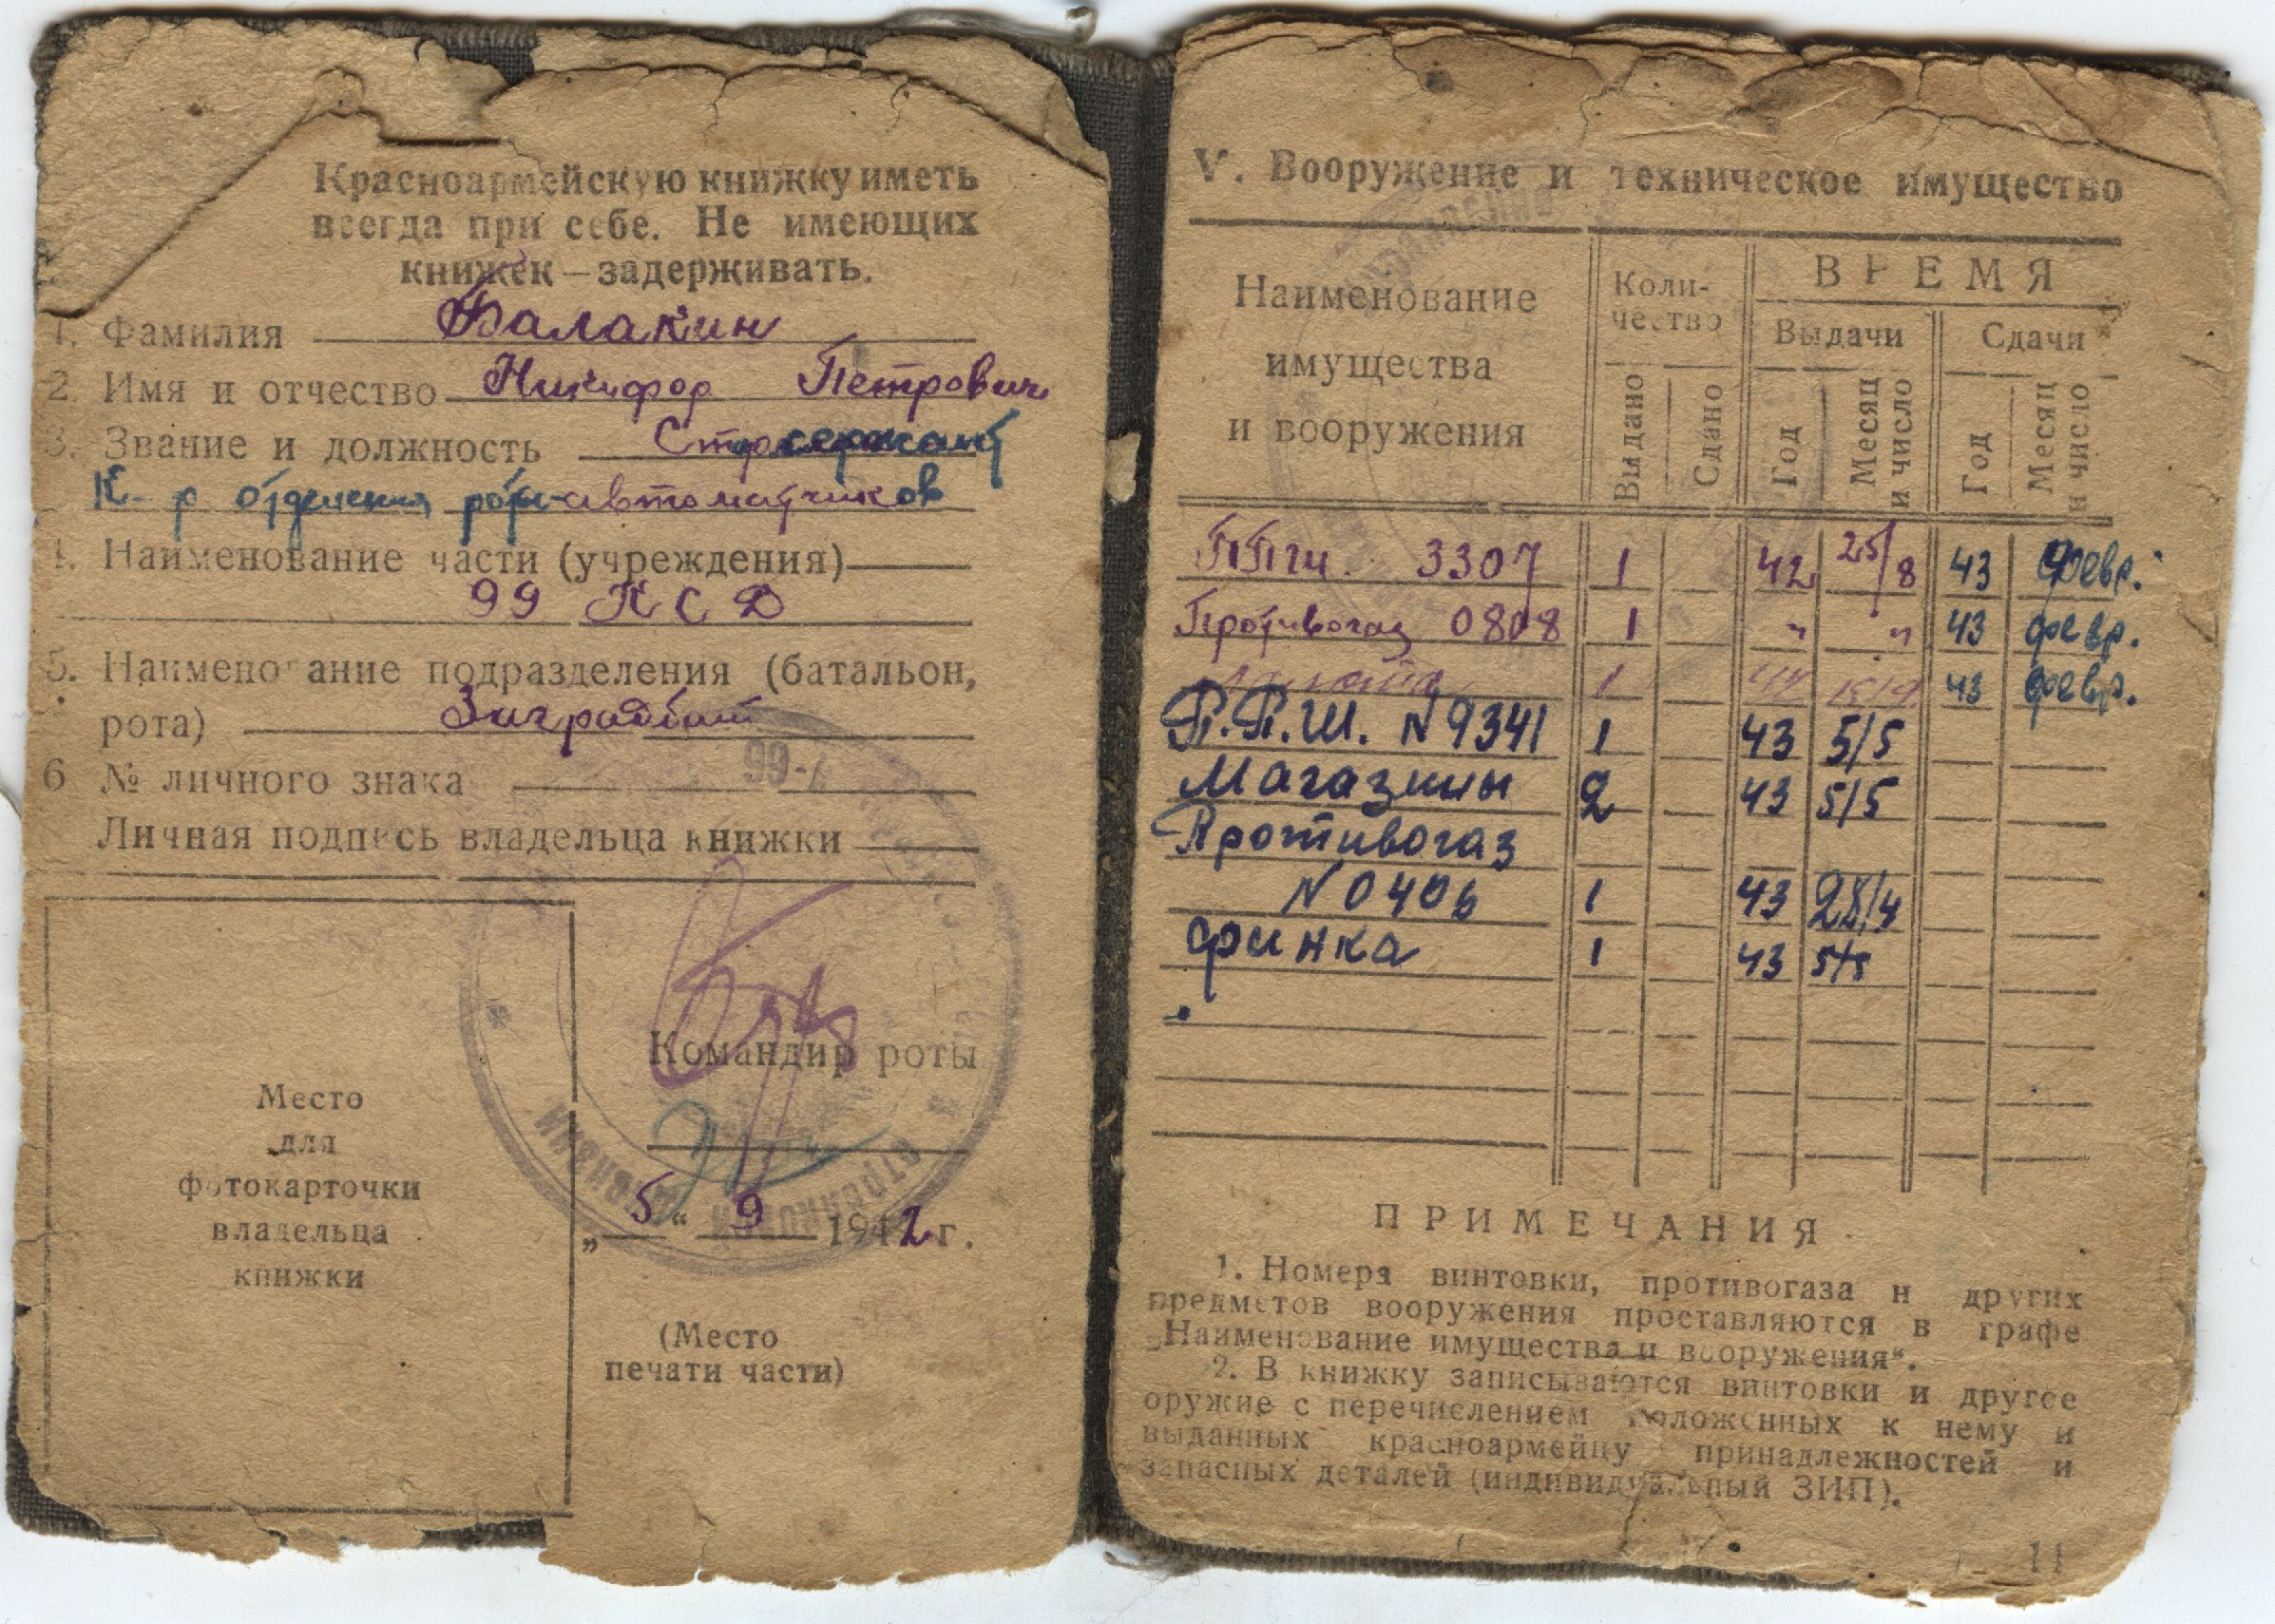 Красноармейскую книжку иметь
всегда при себе. Не имеющих
книжек — задерживать.
1. Фамилия Балакин
2. Имя и отчество Никифор Петрович
3. Звание и должность сержант
К-р отделения роты автоматчиков
4. Наименование части (учреждения)
99 КСД
5. Наименование подразделения (батальон,
рота) Заградбат
6 № личного знака
Личная подпись владельца книжки
Место
для
фотокарточки
владельца
книжки
Командир роты
„5“ 9 1942 г.
(Место
печати части)
V. Вооружение и техническое имущество
Наименование
имущества
и вооружения
Коли-
чество
Выдано
Сдано
ВРЕМЯ
Выдачи
Сдачи
Год
Месяц
и число
Год
Месяц
и число
ППШ. 3307 1 42 25/8 43 февр.
Противогаз 0808 1 " " 43 февр.
1 43 февр.
П.П.Ш. N 9341 1 43 5/5
Магазины 2 43 5/5
Противогаз
N 0406 1 43 28/4
Финка 1 43 5/5
ПРИМЕЧАНИЯ
1. Номера винтовки, противогаза и других
предметов вооружения проставляются в графе
„Наименование имущества и вооружения“.
2. В книжку записываются винтовки и другое
оружие с перечислением положенных к нему и
выданных красноармейцу принадлежностей и
запасных деталей (индивидуальный ЗИП).
11